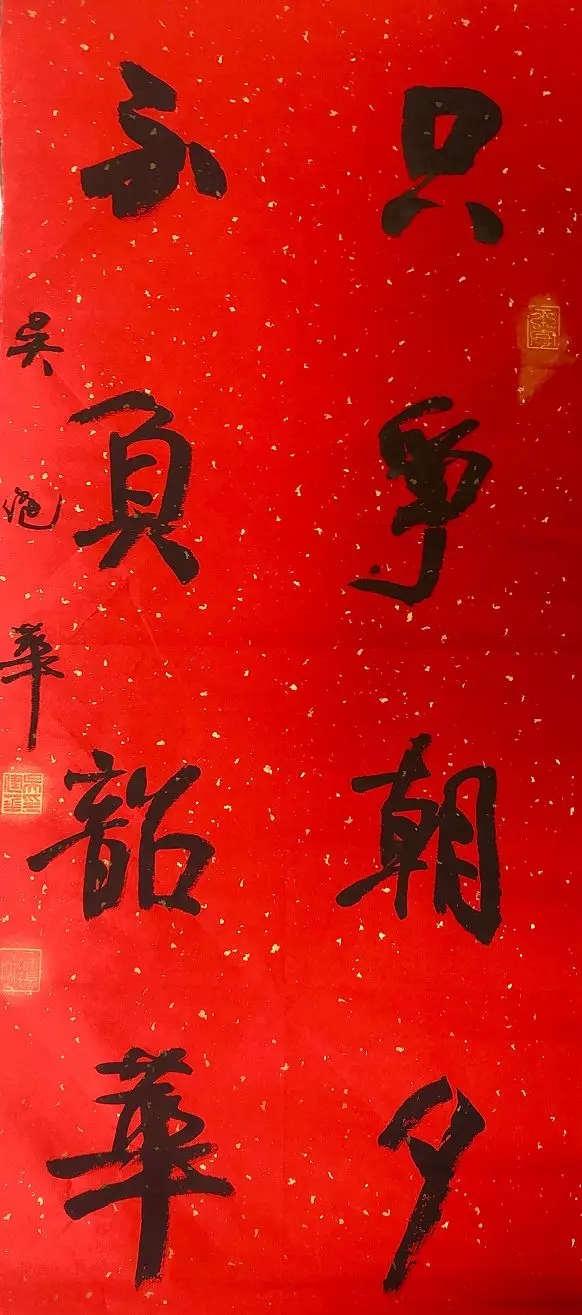 只争朝夕
不負韶華
吴
華